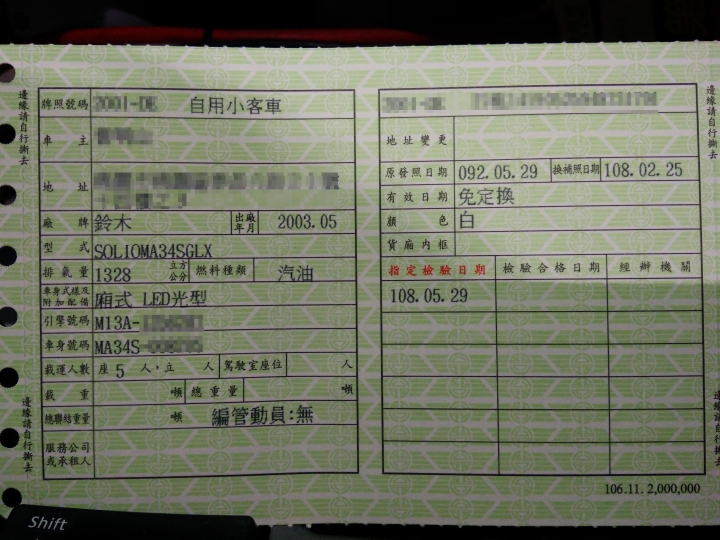 邊緣請自行撕去
牌照號碼 自用小客車
車主
地址
廠牌 鈴木 出廠年月 2003.05
型式 SOLIOMA34SGLX
排氣量 1328 立方公分 燃料種類 汽油
車身式樣及附加配備 廂式 LED光型
引擎號碼 M13A-
車身號碼 MA34S-
載運人數 座 5 人，立 人 駕駛室座位 人
載重 噸 總重量 噸
總聯結重量 噸 編管動員:無
服務公司或承租人
邊緣請自行撕去
地址變更
原發照日期 092.05.29 換補照日期 108.02.25
有效日期 免定換
顏色 白
貨廂內框
指定檢驗日期 檢驗合格日期 經辦機關
108.05.29
106.11. 2,000,000
邊緣請自行撕去
邊緣請自行撕去
Shift